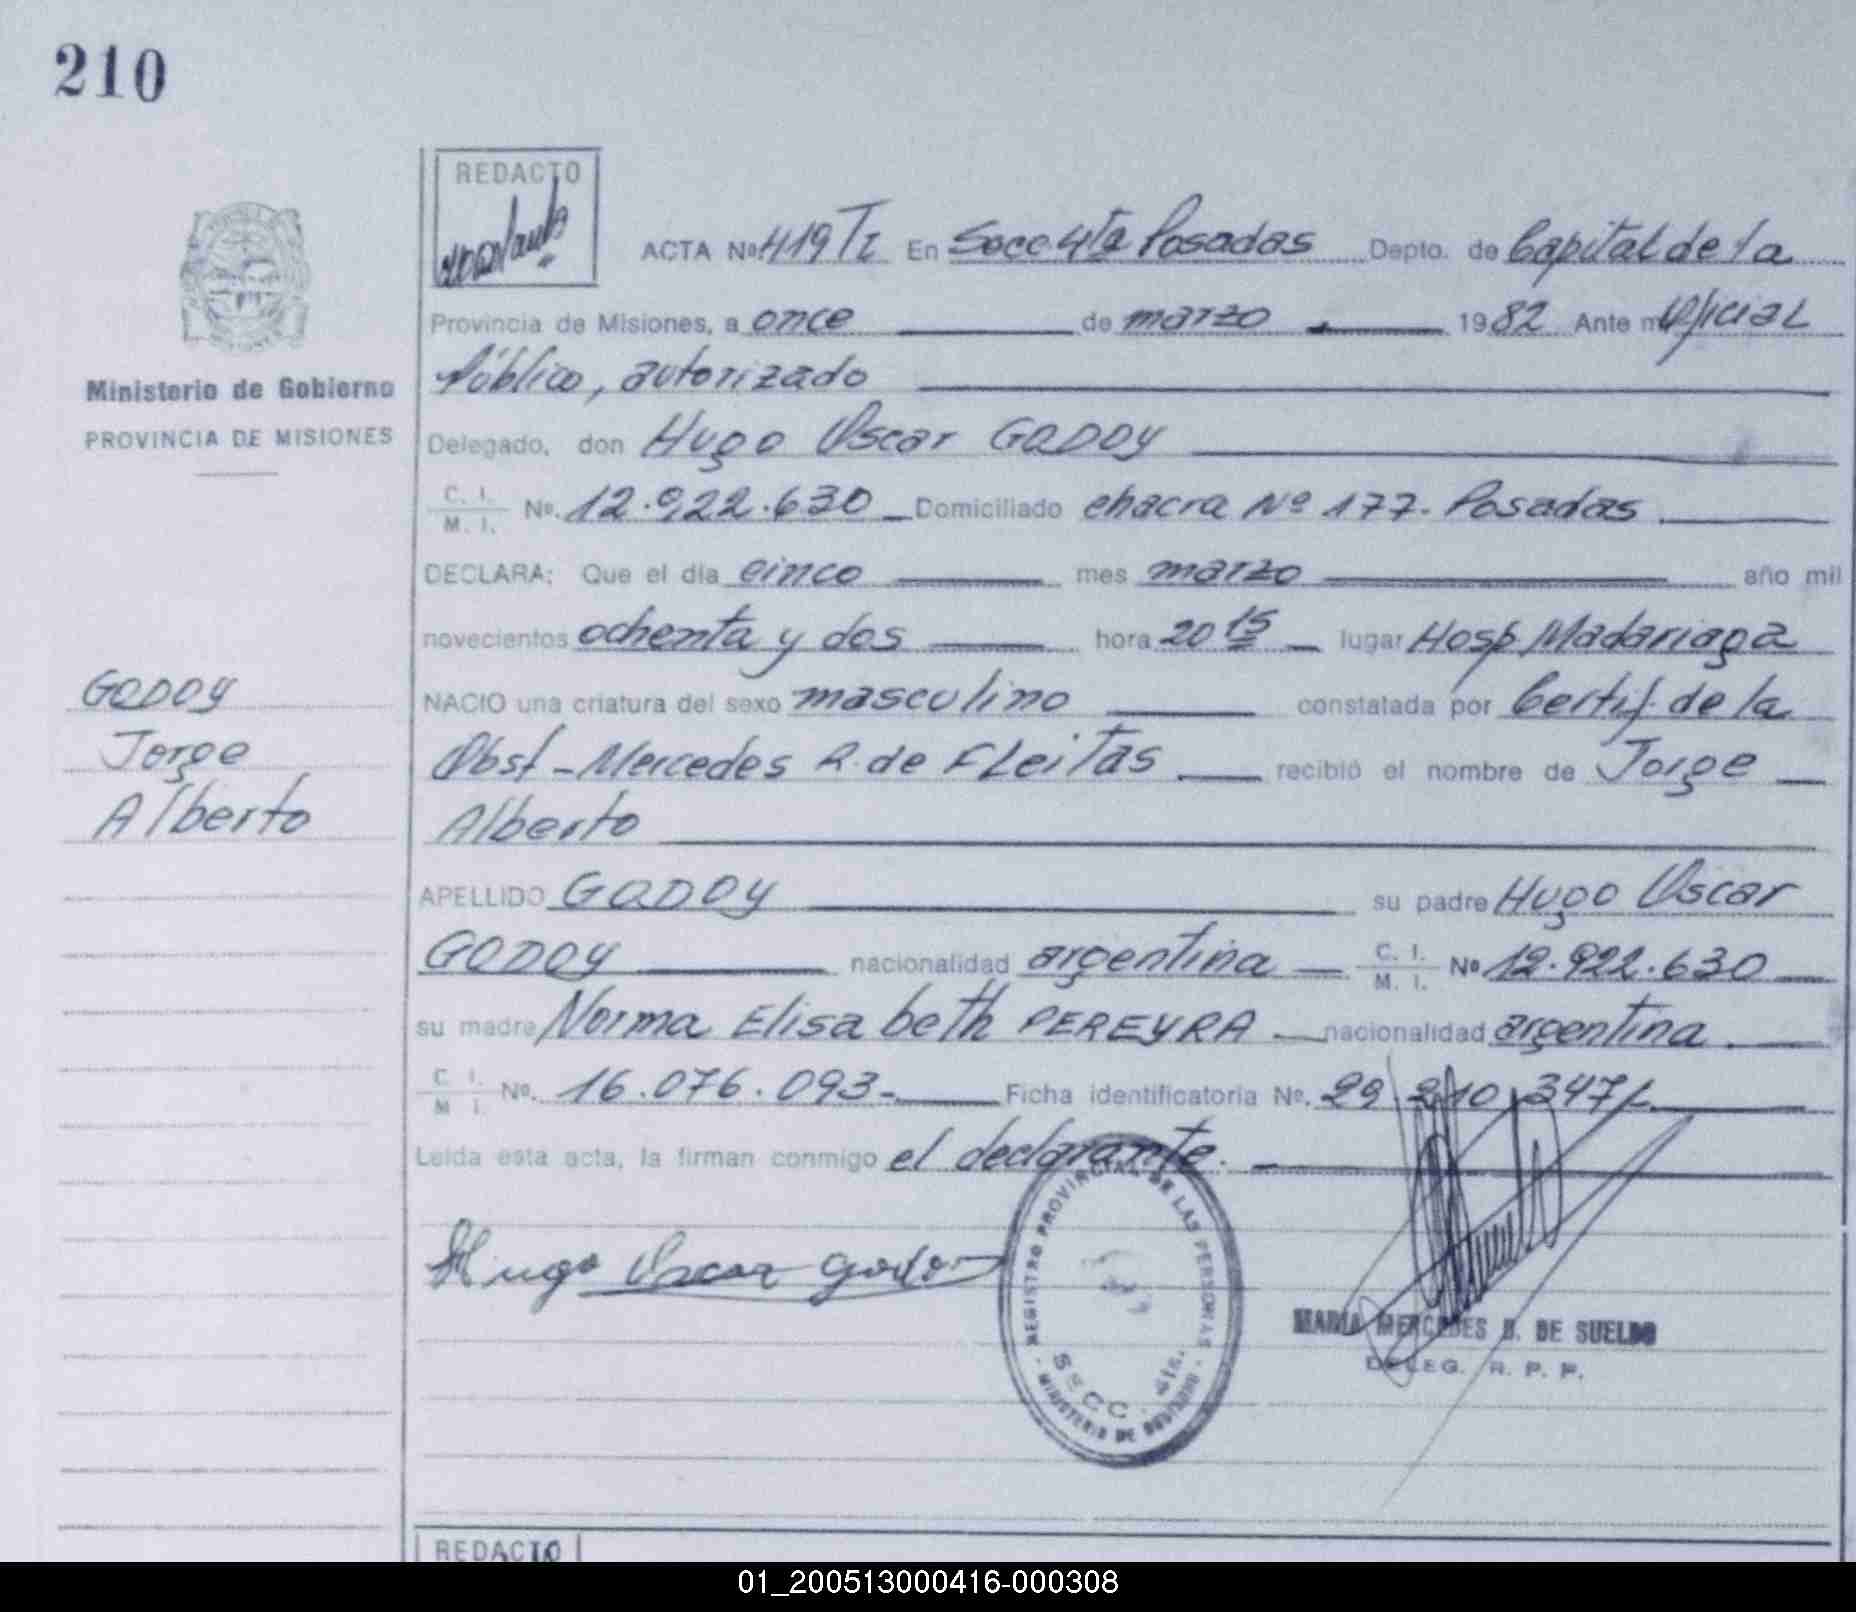 210
REDACTO
ACTA Nº 419 TI En Secc 4ta Posadas Depto. de Capital de la
Provincia de Misiones, a once de marzo 1982 Ante mí Oficial
Público, autorizado
Ministerio de Gobierno
PROVINCIA DE MISIONES
Delegado, don Hugo Oscar GODOY
C. I. M. I. Nº. 12.922.630 Domiciliado chacra Nº 177. Posadas
DECLARA: Que el día cinco mes marzo año mil
novecientos ochenta y dos hora 20 15 lugar Hosp. Madariaga
GODOY
Jorge
Alberto
NACIO una criatura del sexo masculino constatada por Certif. de la
Obst- Mercedes R. de FLeitas recibió el nombre de Jorge
Alberto
APELLIDO GODOY su padre Hugo Oscar
GODOY nacionalidad argentina C. I. M. I. Nº 12.922.630
su madre Norma Elisabeth PEREYRA nacionalidad argentina
C. I. M I. Nº. 16.076.093- Ficha identificatoria Nº. 29.210.347/-
Leída esta acta, la firman conmigo el declarante.
Hugo Oscar Godoy
REGISTRO PROVINCIAL DE LAS PERSONAS
SECC. 4ta.
- MINISTERIO DE GOBIERNO -
MARIA MERCEDES B. DE SUELDO
DELEG. R. P. P.
REDACTO
01_200513000416-000308